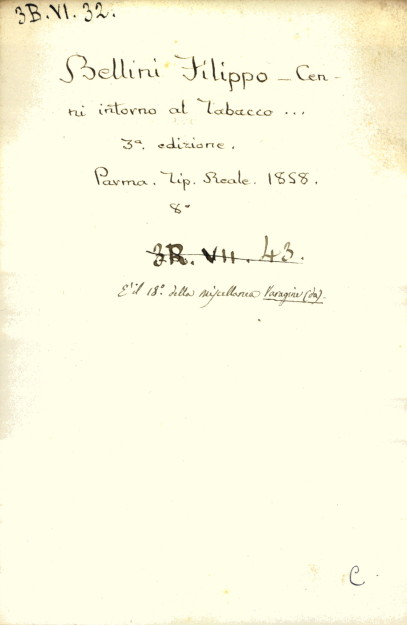 3B.VI.32.
Bellini Filippo – Cen-
ni intorno al Tabacco ...
3ª. edizione.
Parma. Tip. Reale. 1858.
8º
3R. VII. 43.
E' il 18.º della miscellanea Varagine (da).
C.